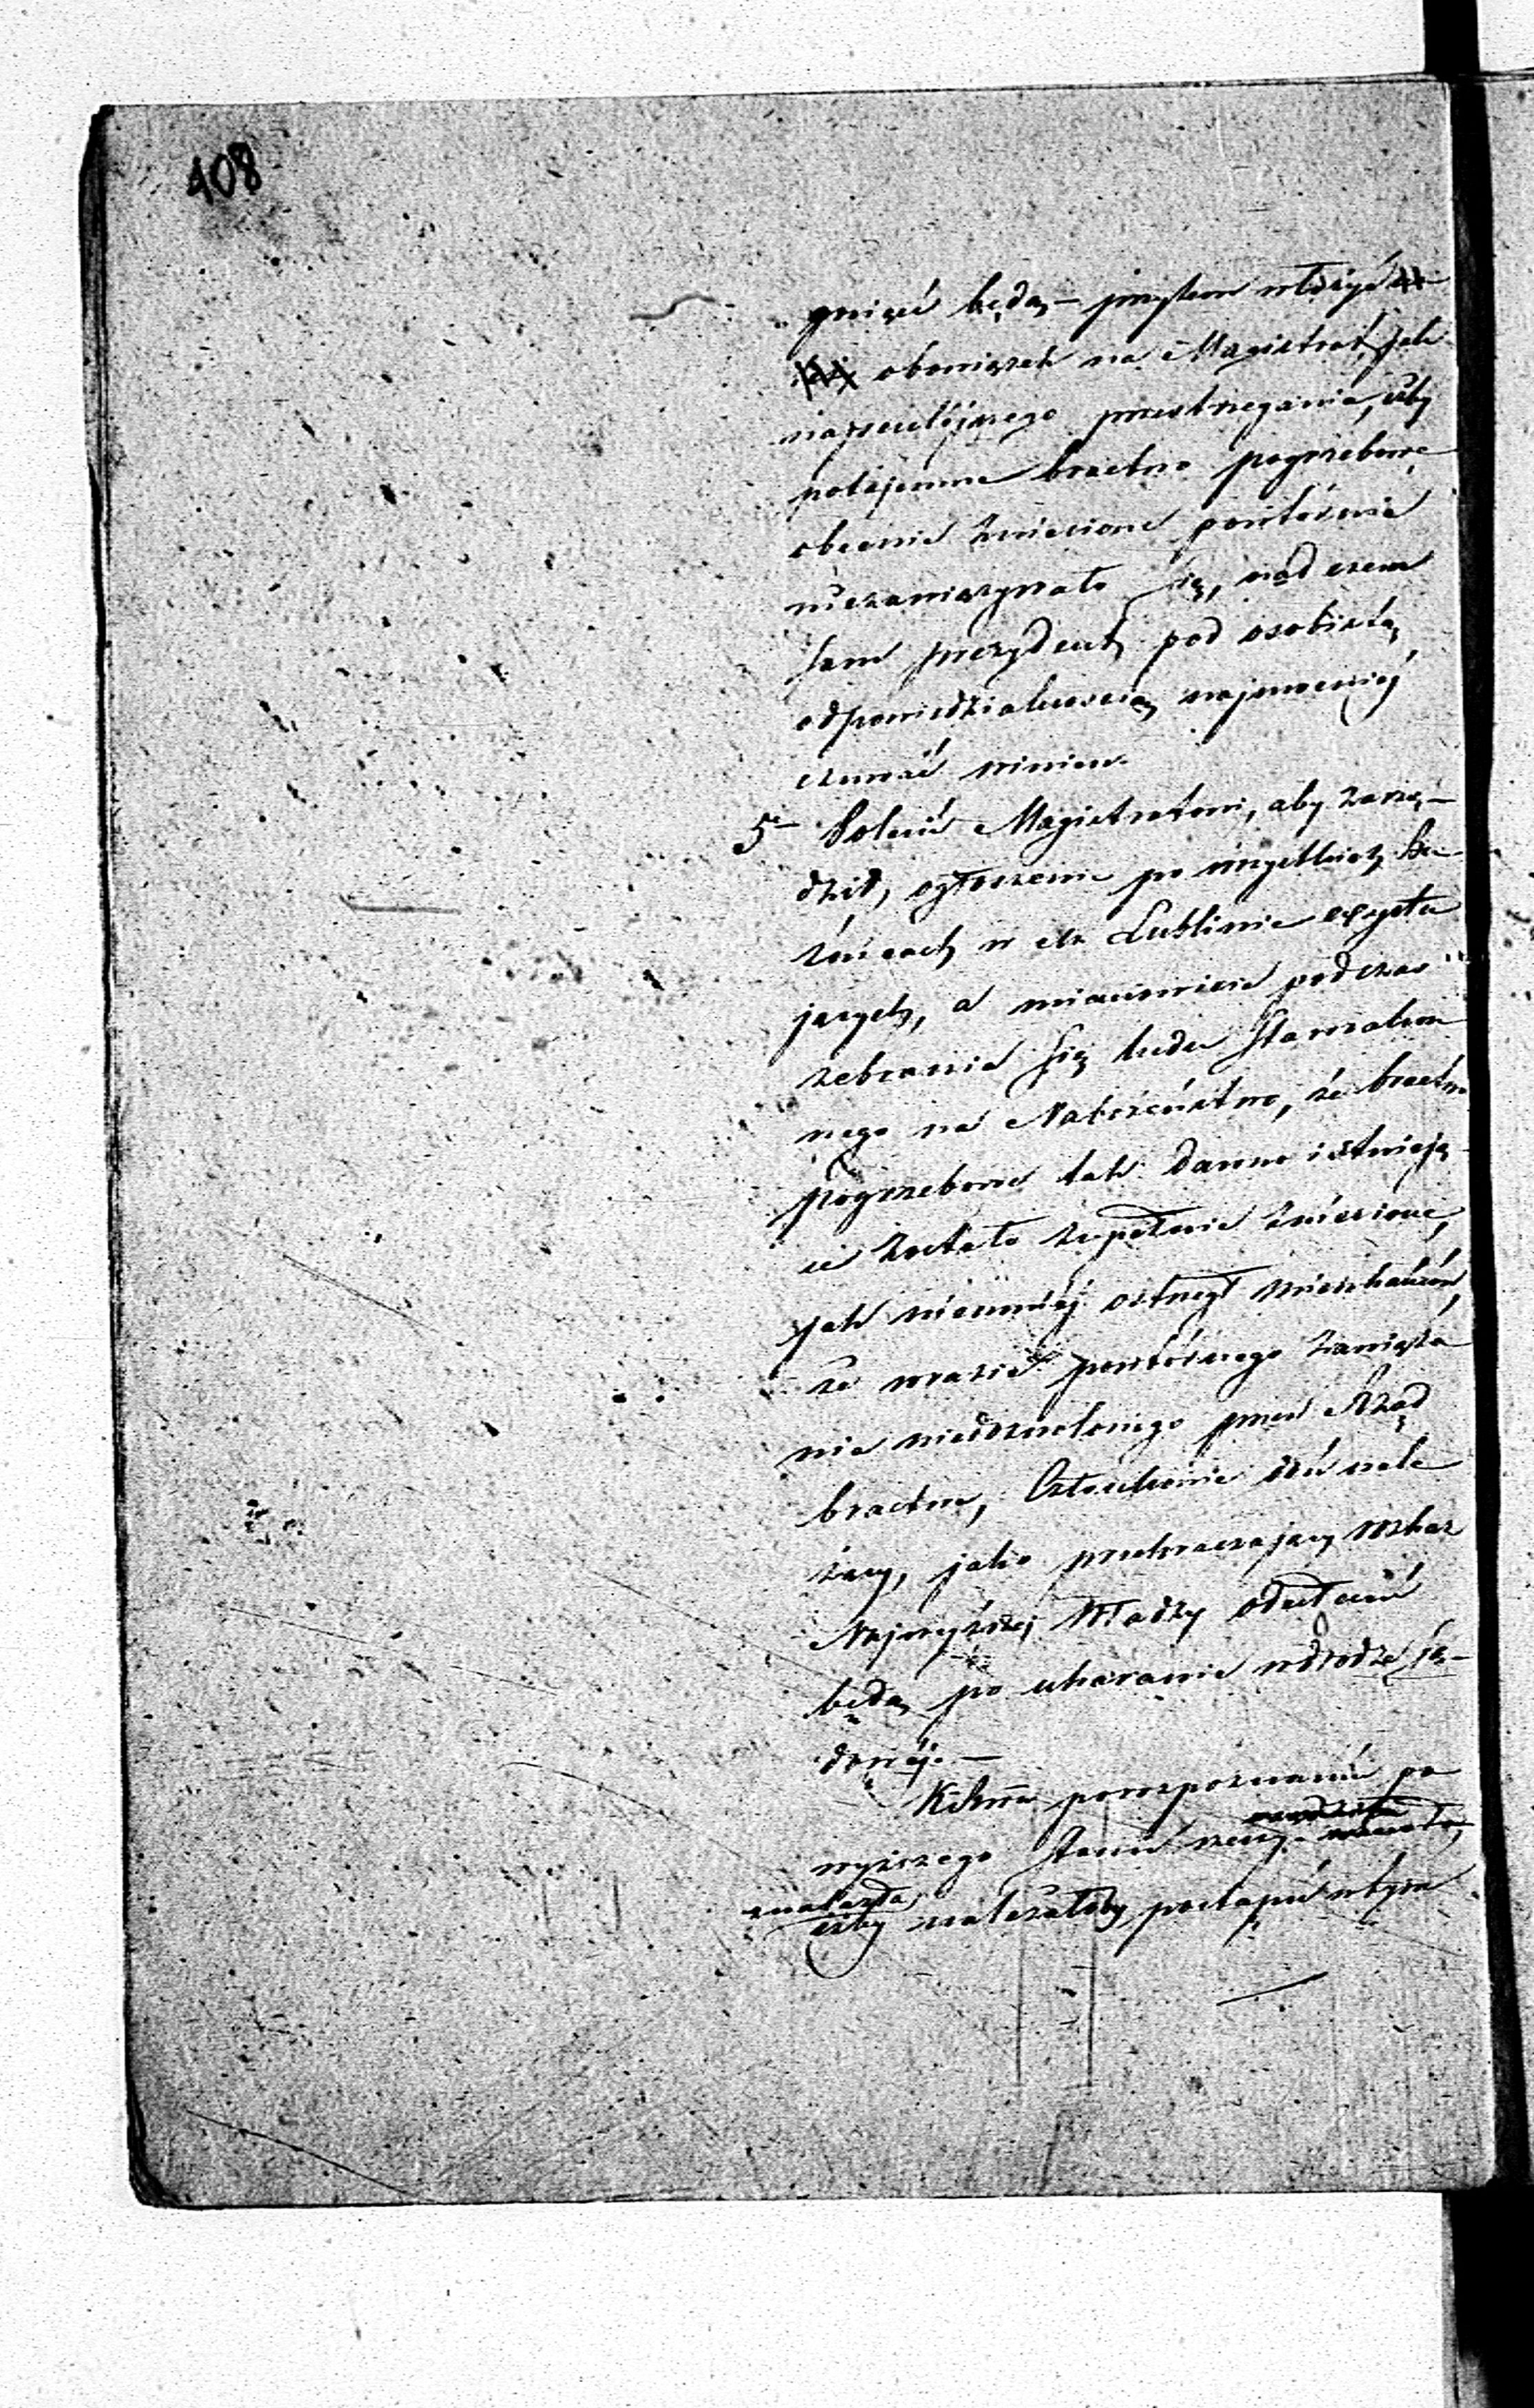 408
gnięci będą, — przytem włożyć
obowiązek na Magistrat, jak
najściślejszego przestrzegania, iżby
potajemne bractwo pogrzebowe
obecnie zniesione powtórnie
niezawięzywało się, nad czem
sam prezydent pod osobistą
odpowiedzialnością najmocniéj
czuwać winien.
5e Polecić Magistratowi, aby zarzą-
dził, ogłoszenie po wszystkich Bo-
żnicach w M. Lublinie exystu
jących, a mianowicie podczas
zebrania się ludu Starozakon
nego na Nabożeństwo, że bractwo
pogrzebowe tak dawno istnieją
ce zostało zupełnie zniesione,
jak niemniéj ostrzegł mieszkańców,
że wrazie powtórnego zawiąza
nia niedozwolonego przez Rząd
bractwa, Członkowie doń nale
żący, jako przekraczający rozkaz
Najwyższéj Władzy odesłani
będą po ukaranie wdrodze są-
dowéj. —
po rozpoznaniu po
wyższego stanu rzeczy
znalazła,
iżby należałoby postąpić wtym